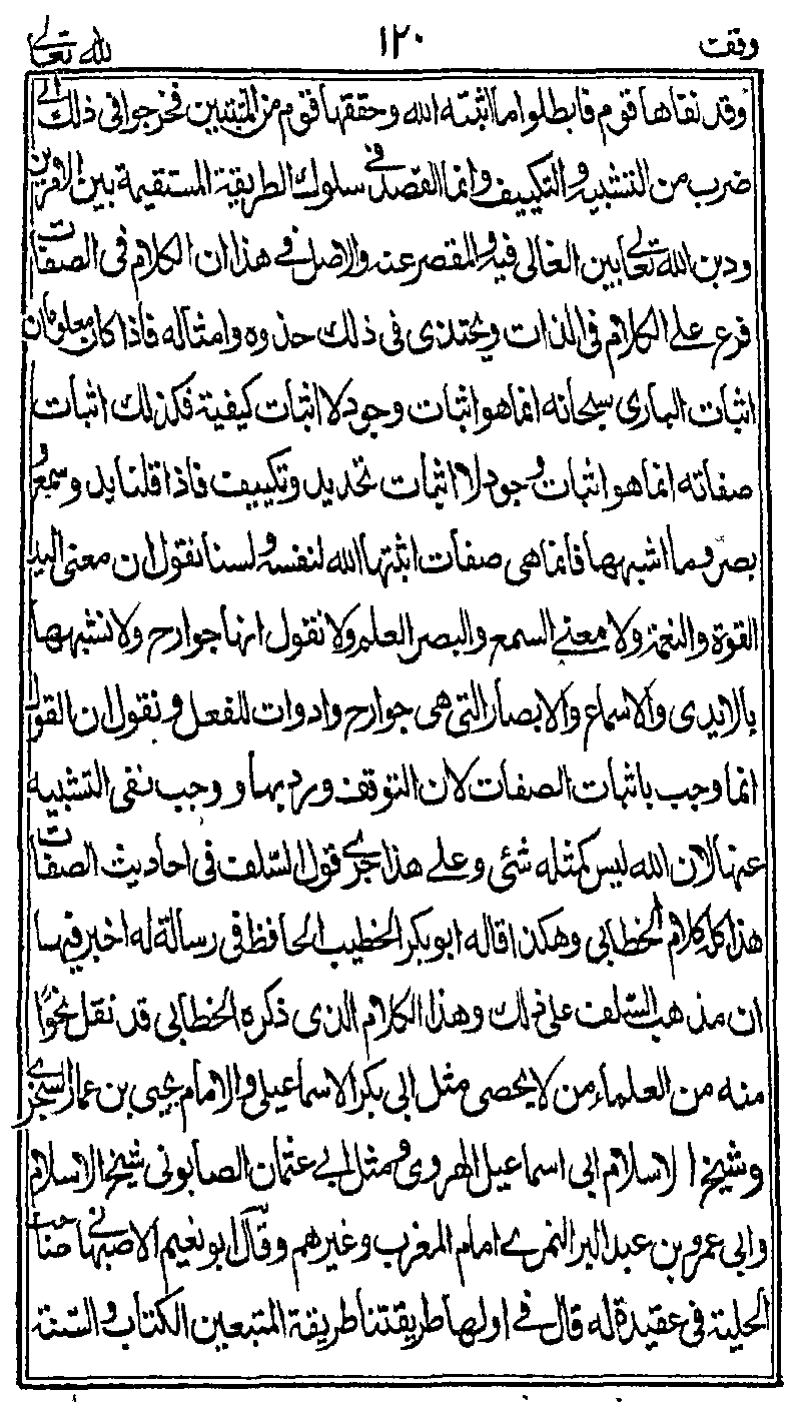 وقفت ١٢٠ لله تعالى
وقد نفاها قوم فابطلوا ما اثبته الله وحققها قوم من المثبتين فخرجوا في ذلك الى
ضرب من التشبيه والتكييف وانما القصد في سلوك الطريقة المستقيمة بين الامرين
ودين الله تعالى بين الغالي فيه والمقصر عنه والاصل في هذا ان الكلام في الصفات
فرع على الكلام في الذات ويحتذى في ذلك حذوه وامثاله فاذا كان معلوما ان
اثبات الباري سبحانه انما هو اثبات وجود لا اثبات كيفية فكذلك اثبات
صفاته انما هو اثبات وجود لا اثبات تحديد وتكييف فاذا قلنا يد وسمع و
بصر وما اشبهها فانما هي صفات اثبتها الله لنفسه ولسنا نقول ان معنى اليد
القوة والنعمة ولا معنى السمع والبصر العلم ولا نقول انها جوارح ولا نشبهها
بالايدي والاسماع والابصار التي هي جوارح وادوات للفعل ونقول ان القول
انما وجب باثبات الصفات لان التوقف ورد بها ووجب نفي التشبيه
عنها لان الله ليس كمثله شئ وعلى هذا جرى قول السلف في احاديث الصفات
هذا كله كلام الخطابي وهكذا قاله ابو بكر الخطيب الحافظ في رسالة له اخبر فيها
ان مذهب السلف على ذلك وهذا الكلام الذي ذكره الخطابي قد نقل نحوًا
منه من العلماء من لا يحصى مثل ابي بكر الاسماعيلي والامام يحيى بن عمار السجزي
وشيخ الاسلام ابي اسماعيل الهروي ومثل ابي عثمان الصابوني شيخ الاسلام
وابي عمرو بن عبد البر النمري امام المغرب وغيرهم وقال ابو نعيم الاصبهاني صاحب
الحلية في عقيدة له قال في اولها طريقتنا طريقة المتبعين الكتاب والسنة